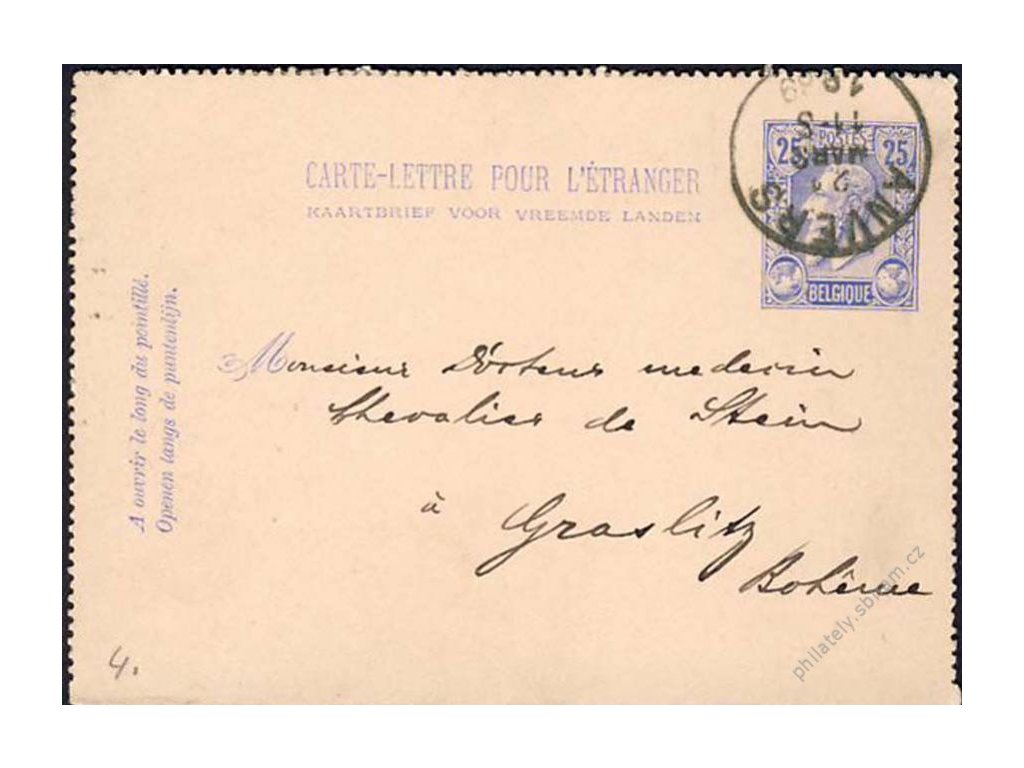 CARTE-LETTRE POUR L'ÉTRANGER
KAARTBRIEF VOOR VREEMDE LANDEN
25 POSTES 25
BELGIQUE
ANVERS
MARS
11-S
A ouvrir le long du pointillé.
Openen langs de puntenlijn.
Monsieur Docteur medecin
Chevalier de Stein
à Graslitz
Bohême
4.
philately.sbiram.cz